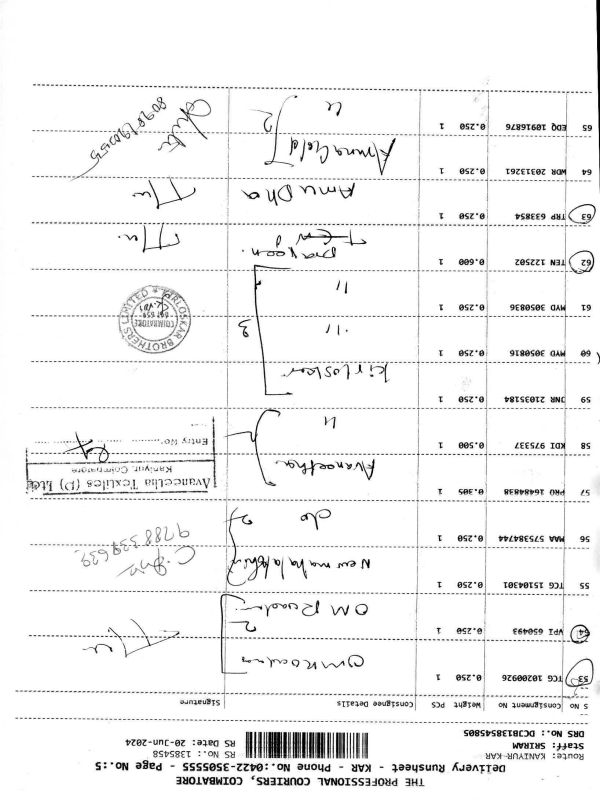 THE PROFESSIONAL COURIERS, COIMBATORE
Delivery Runsheet - KAR - Phone No.:0422-3505555 - Page No.:5
Route: KANIYUR-KAR
Staff: SRIRAM
DRS No.: DCJB138545805
RS No.: 1385458
RS Date: 20-Jun-2024
S No Consignment No Weight PCS Consignee Details Signature
53 TCG 10200926 0.250 1
54 VPI 650493 0.250 1 OM
2
55 TCG 15104301 0.250 1 New mahalakshmi
56 MAA 575384744 0.250 1 do 2
9788339639
57 PRO 16484838 0.305 1 Avaneetha
Avaneetha Textiles (P) Ltd
Kaniyur, Coimbatore
58 KDI 975337 0.500 1 11 2
Entry No.
59 JNR 21035184 0.250 1 Kirlosker
60 MYD 3050816 0.250 1 11 3
KIRLOSKAR BROTHERS LIMITED
COIMBATORE
61 MYD 3050836 0.250 1 11
62 TEN 122502 0.600 1 Praveen
63 TRP 633854 0.250 1 Amudha
64 WDR 20313261 0.250 1 Amma Gold
65 EDQ 10916876 0.250 1 2